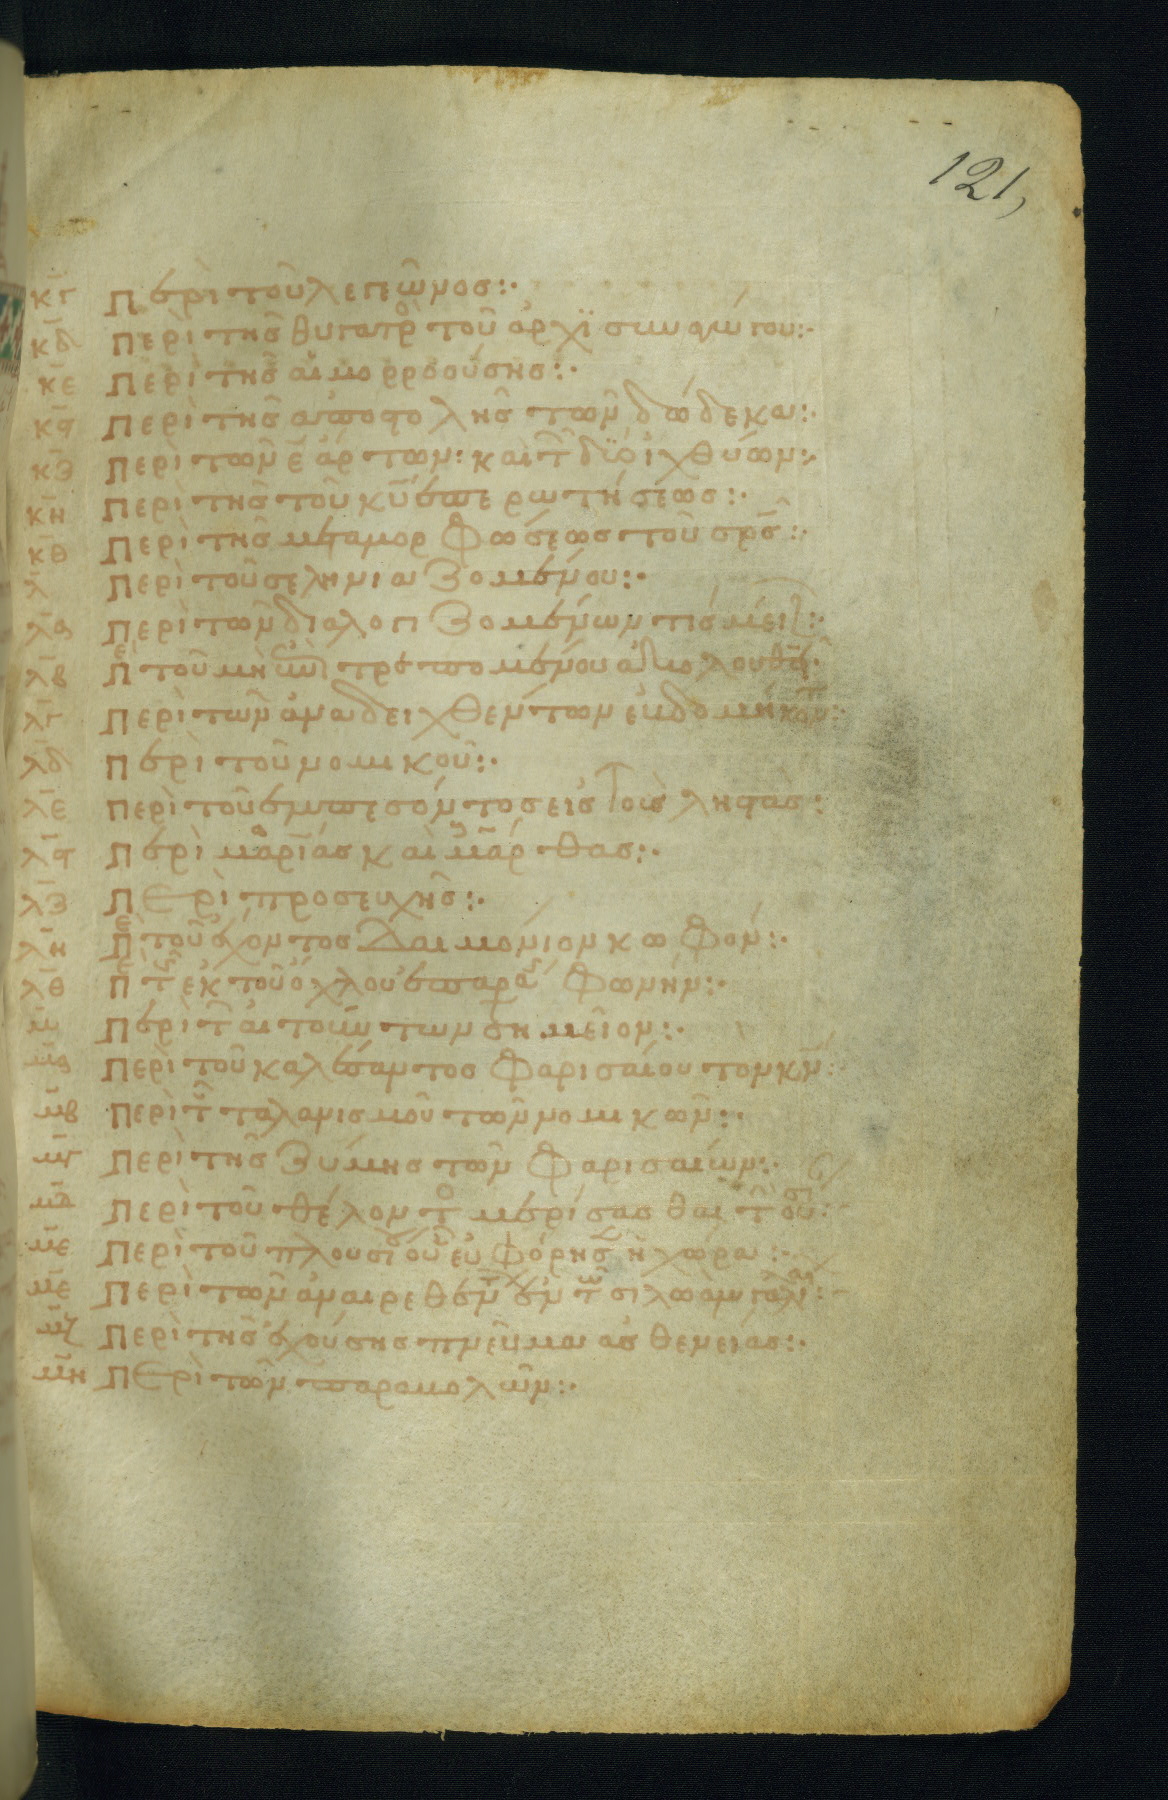 121,
κγ Περὶ τοῦ λεγεῶνος:·
κδ Περὶ τῆς θυγατρ τοῦ ἀρχϊσυναγώγου:·
κε Περὶ τῆς αἱμορροούσης:·
κϛ Περὶ τῆς ἀποστολῆς τῶν δώδεκα:·
κζ Περὶ τῶν ε̄ ἄρτων: καὶ τ δϊο ἰχθύων:·
κη Περὶ τῆς τοῦ κῡ ἐπερωτήσεως:·
κθ Περὶ τῆς μεταμορφώσεως τοῦ σρς:·
λ Περὶ τοῦ σεληνιαζομένου:·
λα Περὶ τῶν διαλογιζομένων τίς μεί:·
λβ Πε τοῦ μὴ ἐπιτρεπομένου ἀκολουθεῖ:·
λγ Περὶ τῶν ἀναδειχθέντων ἑβδομήκον:·
λδ Περὶ τοῦ νομικοῦ:·
λε Περὶ τοῦ ἐμπεσόντος εἰς τοὺς ληστάς:
λϛ Περὶ μαρίας καὶ μάρθας:·
λζ Περὶ προσευχῆς:·
λη Πε τοῦ ἔχοντος δαιμόνιον κωφόν:·
λθ Πε τ ἐκ τοῦ ὄχλου ἐπαρά φωνήν:·
μ Περὶ τ αἰτούντων σημεῖον:·
μα Περὶ τοῦ καλέσαντος φαρισαίου τὸν κν:
μβ Περὶ τ ταλανισμοῦ τῶν νομικῶν:·
μγ Περὶ τῆς ζύμης τῶν φαρισαίων:·
μδ Περὶ τοῦ θέλοντ μερίσασθαι τ οὐσι:
με Περὶ τοῦ πλουσί οὗ εὐφόρησ ἡ χώρα:·
με Περὶ τῶν ἀναιρεθέν ἐν τ σιλωὰμ γαλ:
μζ Περὶ τῆς ἐχούσης πνεῦμα ἀσθενείας:·
μη Περὶ τῶν παραβολῶν:·